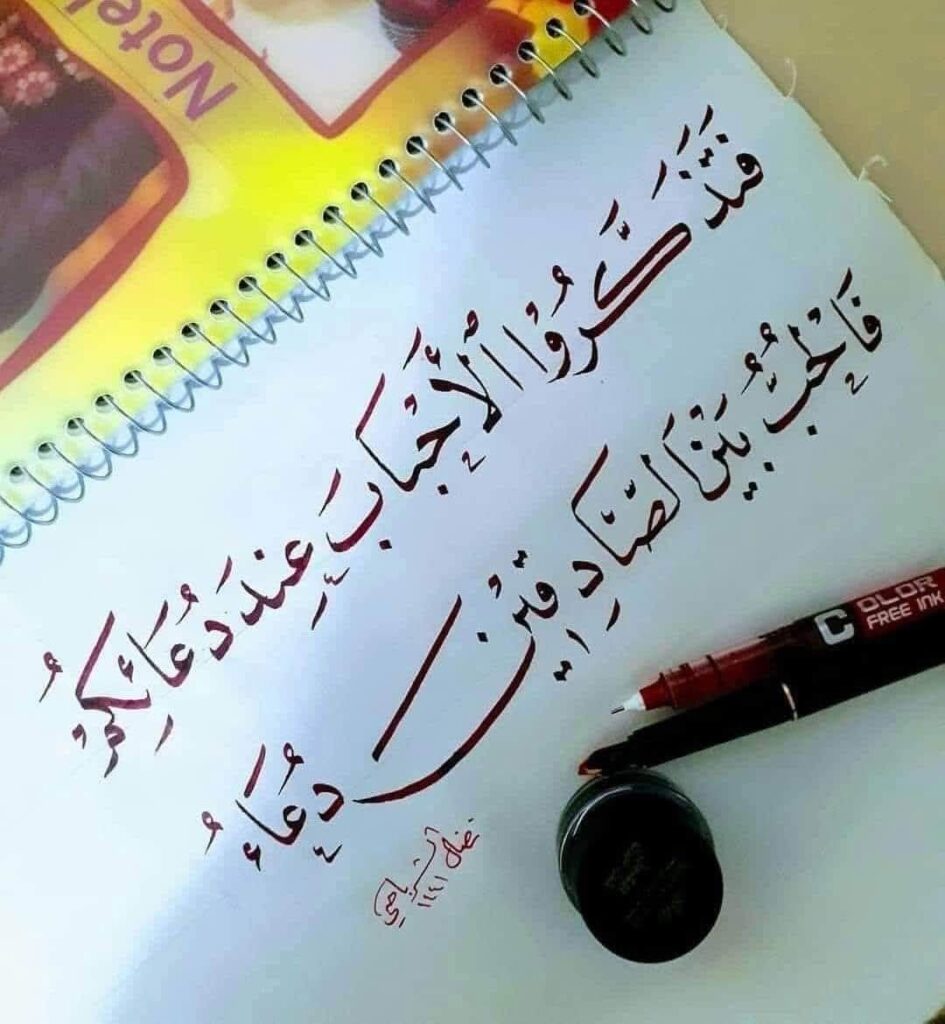 فَتَذَكَّرُوا ٱلْأَحْبَابَ عِندَ دُعَائِكُمْ
فَالْحُبُّ بَيْنَ الصَّادِقِيْنَ دُعَاءُ
نضال
١٤٤١
Note
COLOR
FREE INK